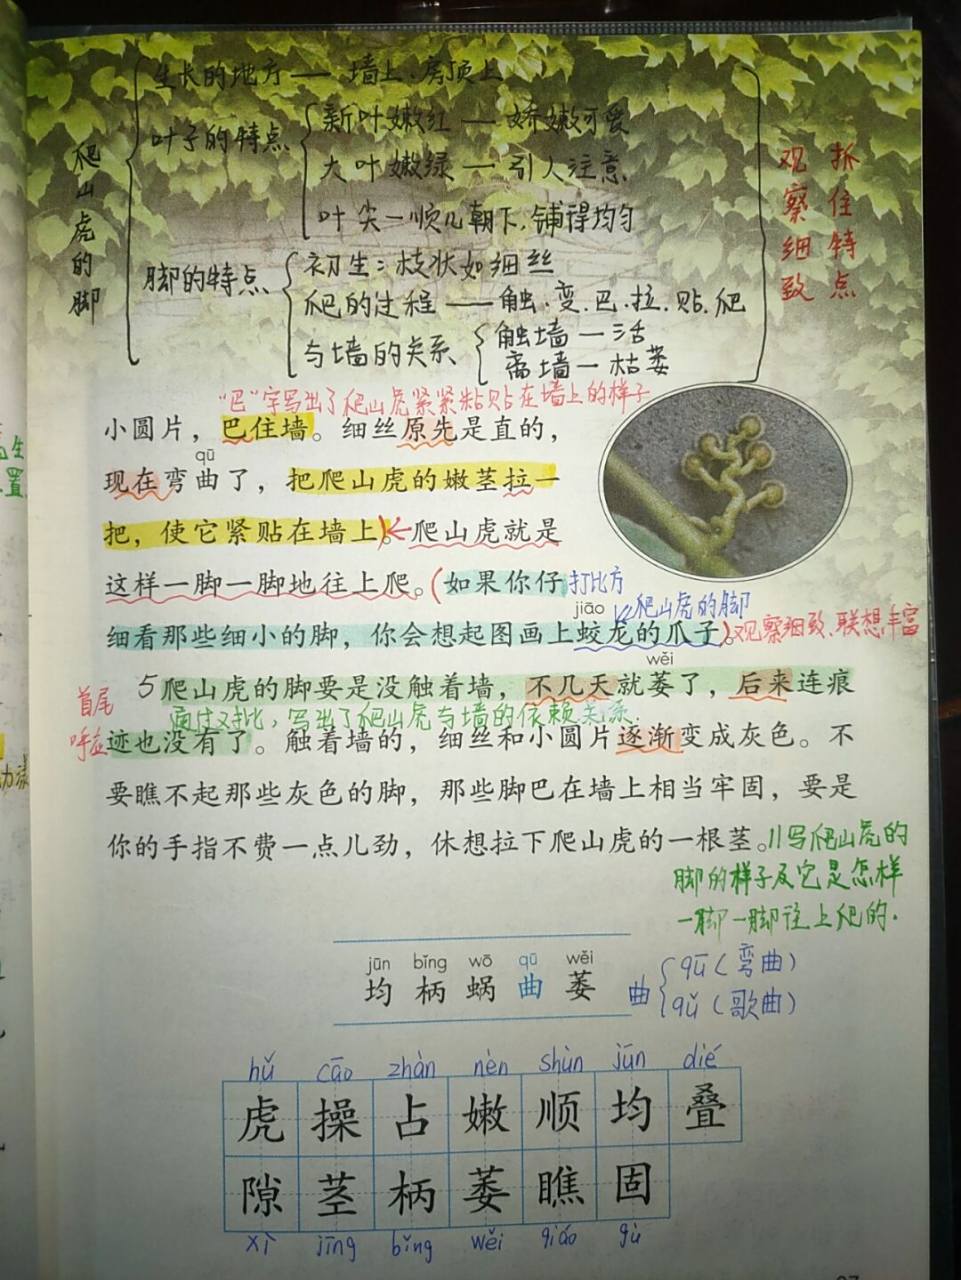 爬山虎的脚
生长的地方—墙上、房顶上
叶子的特点
新叶嫩红—娇嫩可爱
大叶嫩绿—引人注意
叶尖一顺儿朝下,铺得均匀
脚的特点
初生:枝状如细丝
爬的过程—触、变、巴、拉、贴、爬
与墙的关系
触墙—活
离墙—枯萎
抓住特点
观察细致
"巴"字写出了爬山虎紧紧粘贴在墙上的样子
小圆片，巴住墙。细丝原先是直的，
qū
现在弯曲了，把爬山虎的嫩茎拉一
把，使它紧贴在墙上。爬山虎就是
这样一脚一脚地往上爬。(如果你仔
打比方
jiāo
爬山虎的脚
细看那些细小的脚，你会想起图画上蛟龙的爪子)。
观察细致、联想丰富
wěi
5 爬山虎的脚要是没触着墙，不几天就萎了，后来连痕
首尾呼应
通过对比,写出了爬山虎与墙的依赖关系.
迹也没有了。触着墙的，细丝和小圆片逐渐变成灰色。不
要瞧不起那些灰色的脚，那些脚巴在墙上相当牢固，要是
你的手指不费一点儿劲，休想拉下爬山虎的一根茎。
//写爬山虎的
脚的样子及它是怎样
一脚一脚往上爬的.
jūn bǐng wō qū wěi
均 柄 蜗 曲 萎
曲
qū(弯曲)
qǔ(歌曲)
hǔ cāo zhàn nèn shùn jūn dié
虎 操 占 嫩 顺 均 叠
隙 茎 柄 萎 瞧 固
xì jīng bǐng wěi qiáo gù